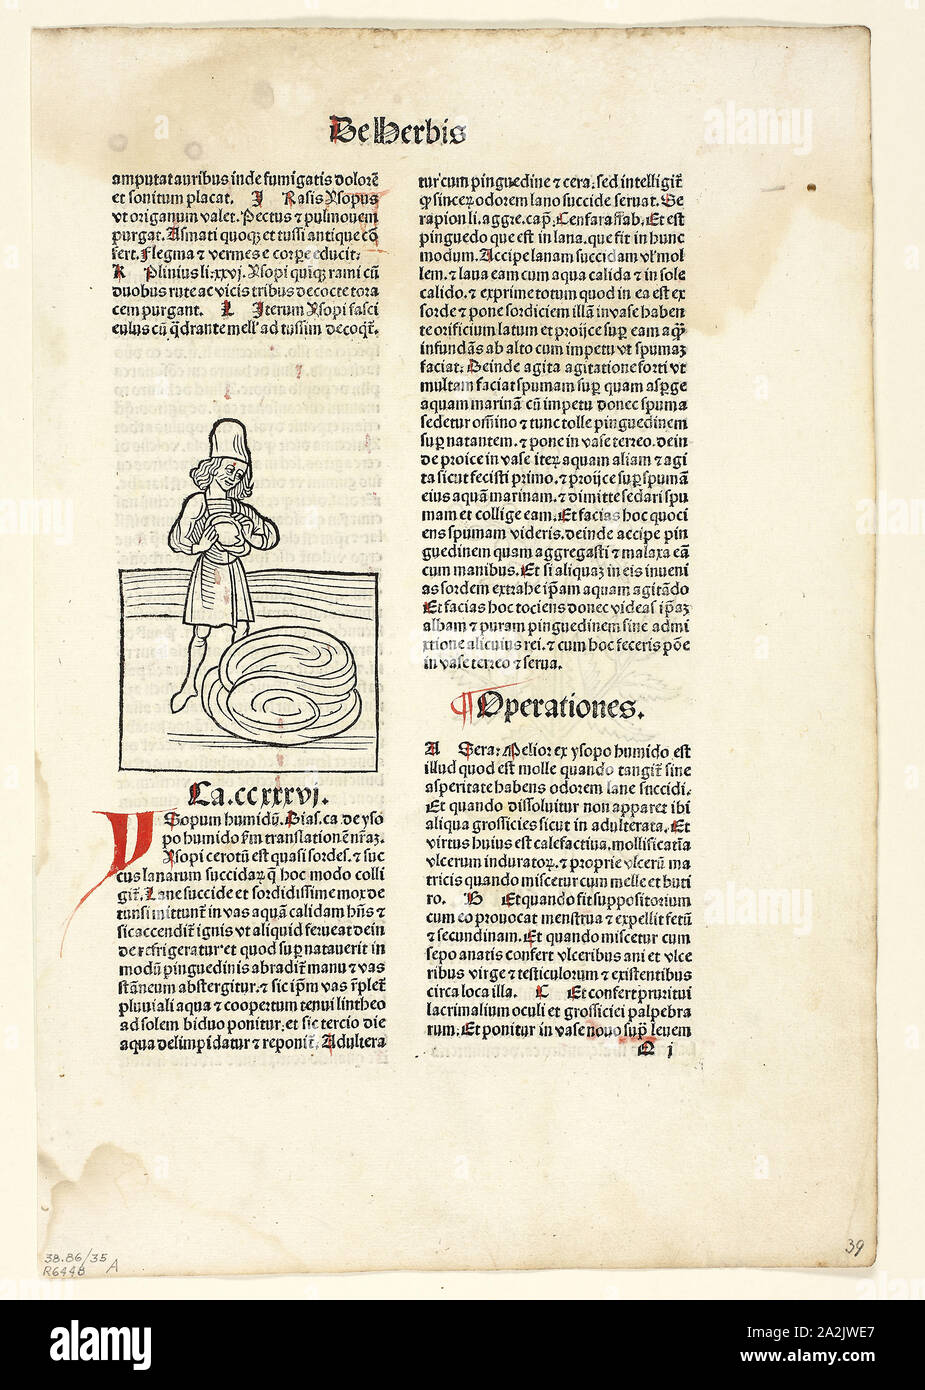 De Herbis
amputat auribus inde fumigatis dolorē
et sonitum placat. I Rasis Ysopus
vt origanum valet. Pectus ⁊ pulmonem
purgat. Asmati quoqȝ et tussi antique cō
fert. Flegma ⁊ vermes e corpe educit:
K Plinius li: xxvj. Ysopi quiqȝ rami cū
duobus rute ac vicis tribus decocte tora
cem purgant. L Iterum Ysopi fasci
culus cū q̄drante mell' ad tussim decoqt̄.
Ca. ccxxxvj.
YSopum humidū. Dias. ca de yso
po humido ẜm translationē nr̄aȝ.
Ysopi cerotū est quasi sordes. ⁊ suc
cus lanarum succidaꝝ q̄ hoc modo colli
git̄. Lane succide et sordidissime mox de
tunsi mittunt̄ in vas aquā calidam hn̄s ⁊
sic accendit̄ ignis vt aliquid ferueat dein
de refrigeratur et quod sup natauerit in
modū pinguedinis abradit̄ manu ⁊ vas
stāneum abstergitur. ⁊ sic ipm vas r̄plet̄
pluuiali aqua ⁊ coopertum tenui lintheo
ad solem biduo ponitur: et sic tercio die
aqua delimpidatur ⁊ reponit̄. Adultera
tur cum pinguedine ⁊ cera. sed intelligit̄
ꝙ sinceꝝ odorem lano succide seruat. Se
rapion li. aggre. cap. Censara ffab. Et est
pinguedo que est in lana. que fit in hunc
modum. Accipe lanam succidam vl' mol
lem. ⁊ laua eam cum aqua calida ⁊ in sole
calido. ⁊ exprime totum quod in ea est ex
sorde ⁊ pone sordiciem illā in vase haben
te orificium latum et proijce sup eam aq̄
infundēs ab alto cum impetu vt spumaȝ
faciat: Deinde agita agitatione forti vt
multam faciat spumam sup quam asperge
aquam marinā cū impetu donec spuma
sedetur om̄ino ⁊ tunc tolle pinguedinem
sup natantem. ⁊ pone in vase terreo. dein
de proice in vase iteꝝ aquam aliam ⁊ agi
ta sicut fecisti primo. ⁊ proijce sup spumā
eius aquā marinam. ⁊ dimitte sedari spu
mam et collige eam. Et facias hoc quoci
ens spumam videris. deinde accipe pin
guedinem quam aggregasti ⁊ malaxa eā
cum manibus. Et si aliquaȝ in eis inueni
as sordem extrahe ip̄am aquam agitādo
Et facias hoc tociens donec videas ip̄aȝ
albam ⁊ puram pinguedinem sine admi
xtione alicuius rei. ⁊ cum hoc feceris pōe
in vase terreo ⁊ serua.
Operationes.
A Sera: Melior ex ysopo humido est
illud quod est molle quando tangit̄ sine
asperitate habens odorem lane succidi.
Et quando dissoluitur non apparet ibi
aliqua grossicies sicut in adulterata. Et
virtus huius est calefactiua. mollificatīa
vlcerum induratoꝝ. ⁊ proprie vlcerū ma
tricis quando miscetur cum melle et buti
ro. B Et quando fit suppositorium
cum eo prouocat menstrua ⁊ expellit fetū
⁊ secundinam. Et quando miscetur cum
sepo anatis confert vlceribus ani et vlce
ribus virge ⁊ testiculorum ⁊ existentibus
circa loca illa. C Et confert pruritui
lacrimalium oculi et grossiciei palpebra
rum: Et ponitur in vase nouo sup leuem
Q j
38.86/35 A
R6448
39
a
alamy
a
alamy
a
alamy
a
alamy
alamy
Image ID: 2A2JWE7
www.alamy.com